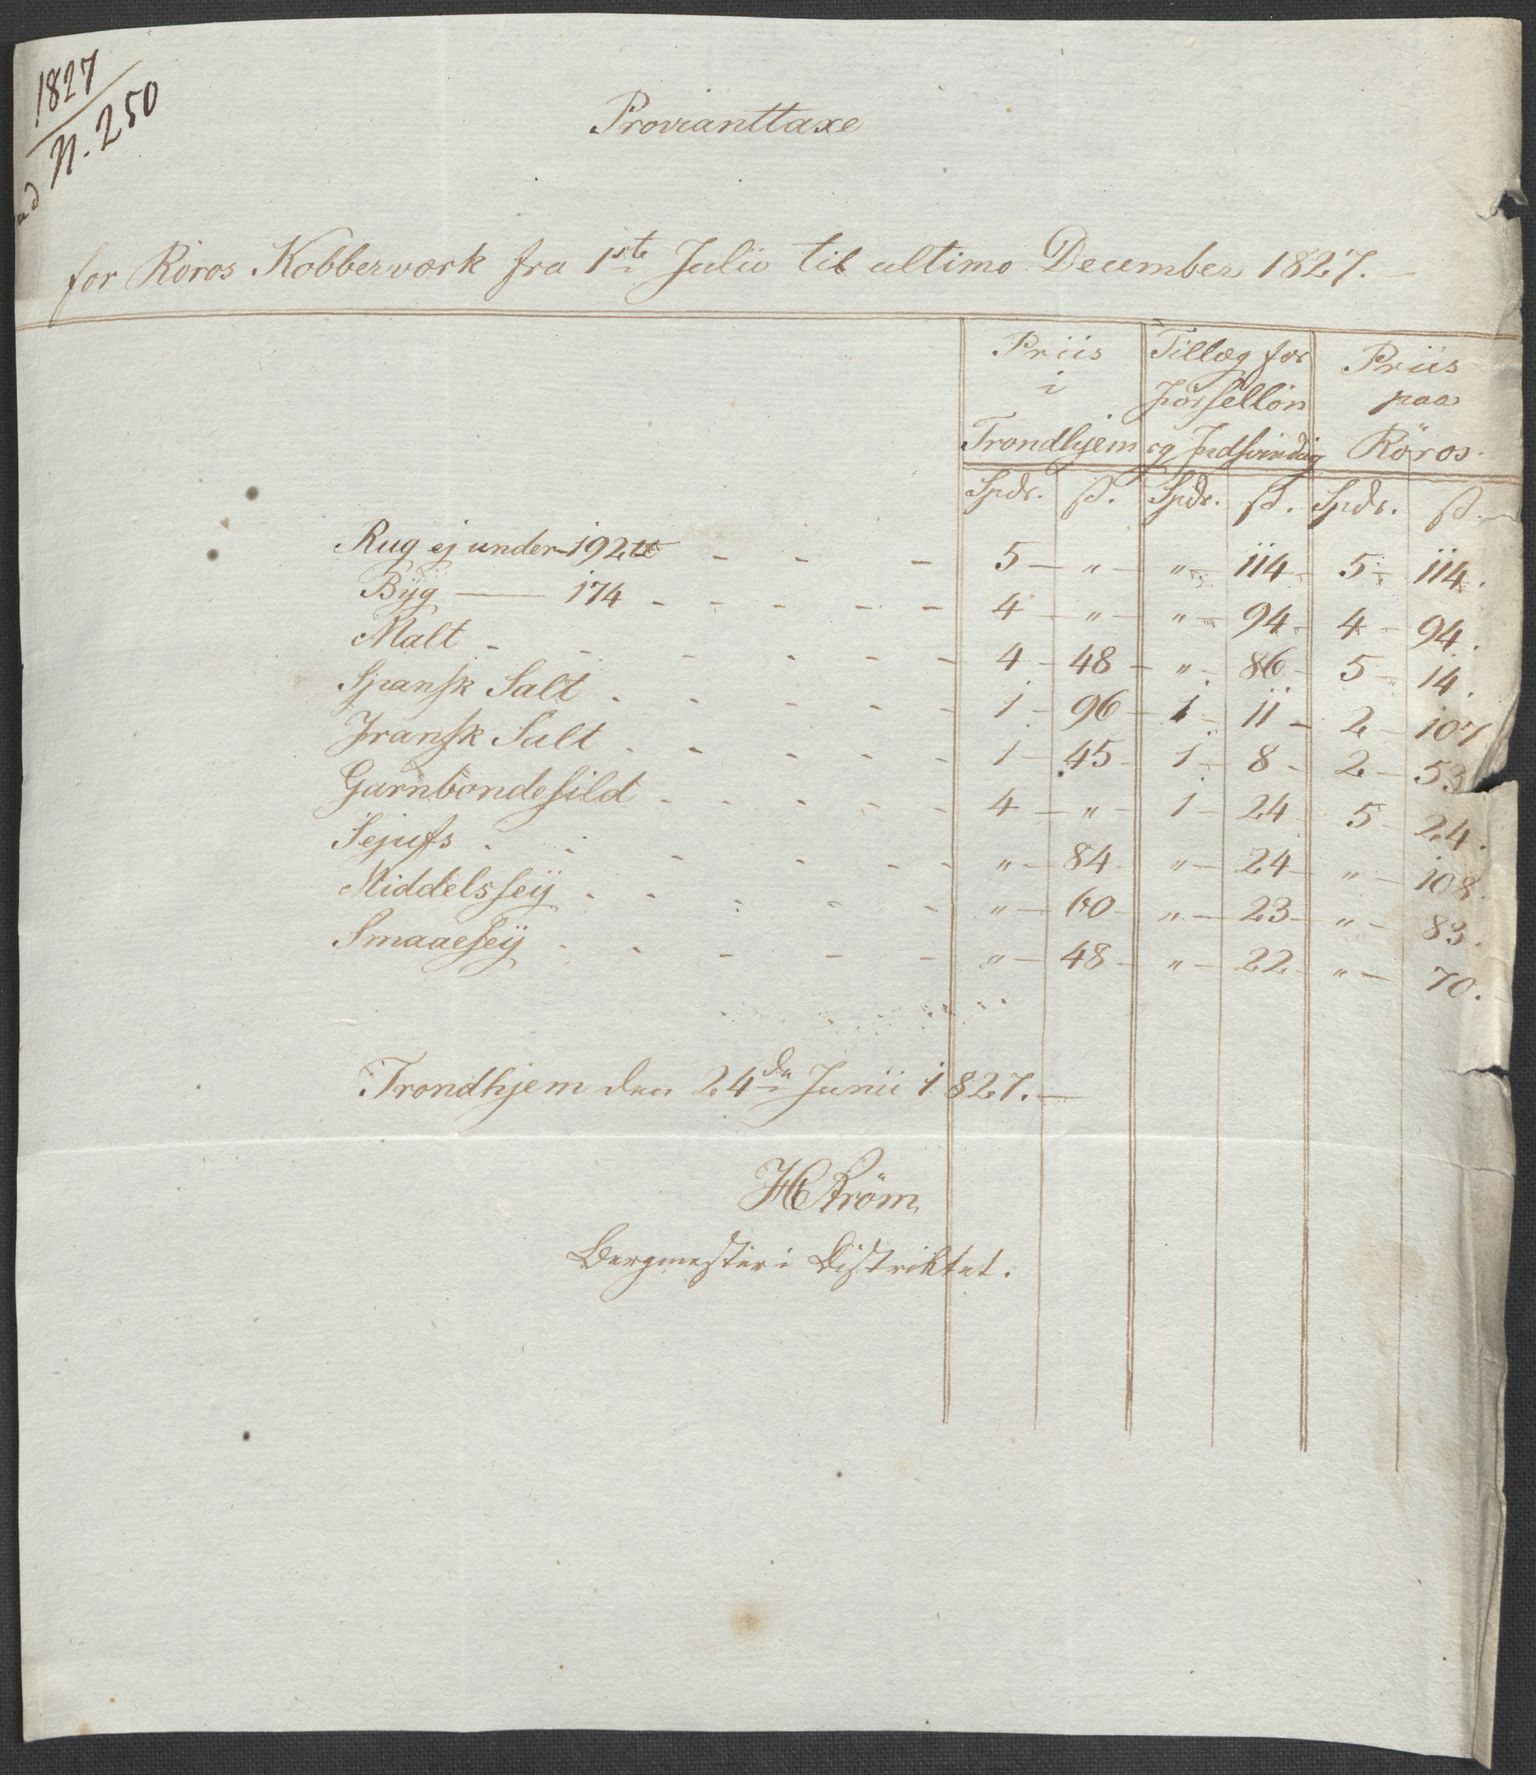 1827
N. 250
Provianttaxe
for Röros Kobberværk fra 1ste Julii til ultimo December 1827. –
Priis i Trondhjem | Tillæg for Förselløn og Indsvinding | Priis paa Röros.
Spdr. | ß. | Spdr. | ß. | Spdr. | ß.
Rug ej under 192 ℔ - - - 5 – " – " – 114 – 5 – 114.
Byg —— 174 - - - - - 4 – " – " – 94 – 4 – 94.
Malt - - - - - - 4 – 48 – " – 86 – 5 – 14.
Spansk Salt - - - - - 1 – 96 – 1 – 11 – 2 – 107
Fransk Salt - - - - - 1 – 45 – 1 – 8 – 2 – 53
Garnbondesild - - - - - 4 – " – 1 – 24 – 5 – 24.
Sejufs - - - - - - " – 84 – " – 24 – " – 108.
Middelssey - - - - - " – 60 – " – 23 – " – 83.
Smaaesey - - - - - " – 48 – " – 22 – " – 70.
Trondhjem den 24de Junii 1827. –
HStröm
Bergmester i Distriktet.